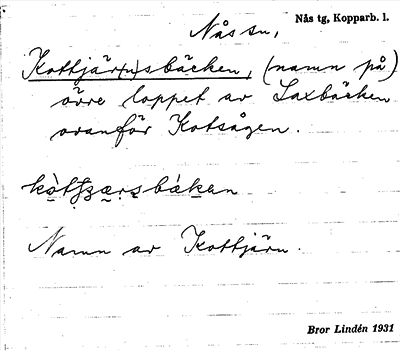 Nås sn,
Nås tg, Kopparb. l.
Kottjär(n)sbäcken, (namn på)
övre loppet av Laxbäcken
ovanför Kotsågen.
Namn av Kottjärn.
Bror Lindén 1931